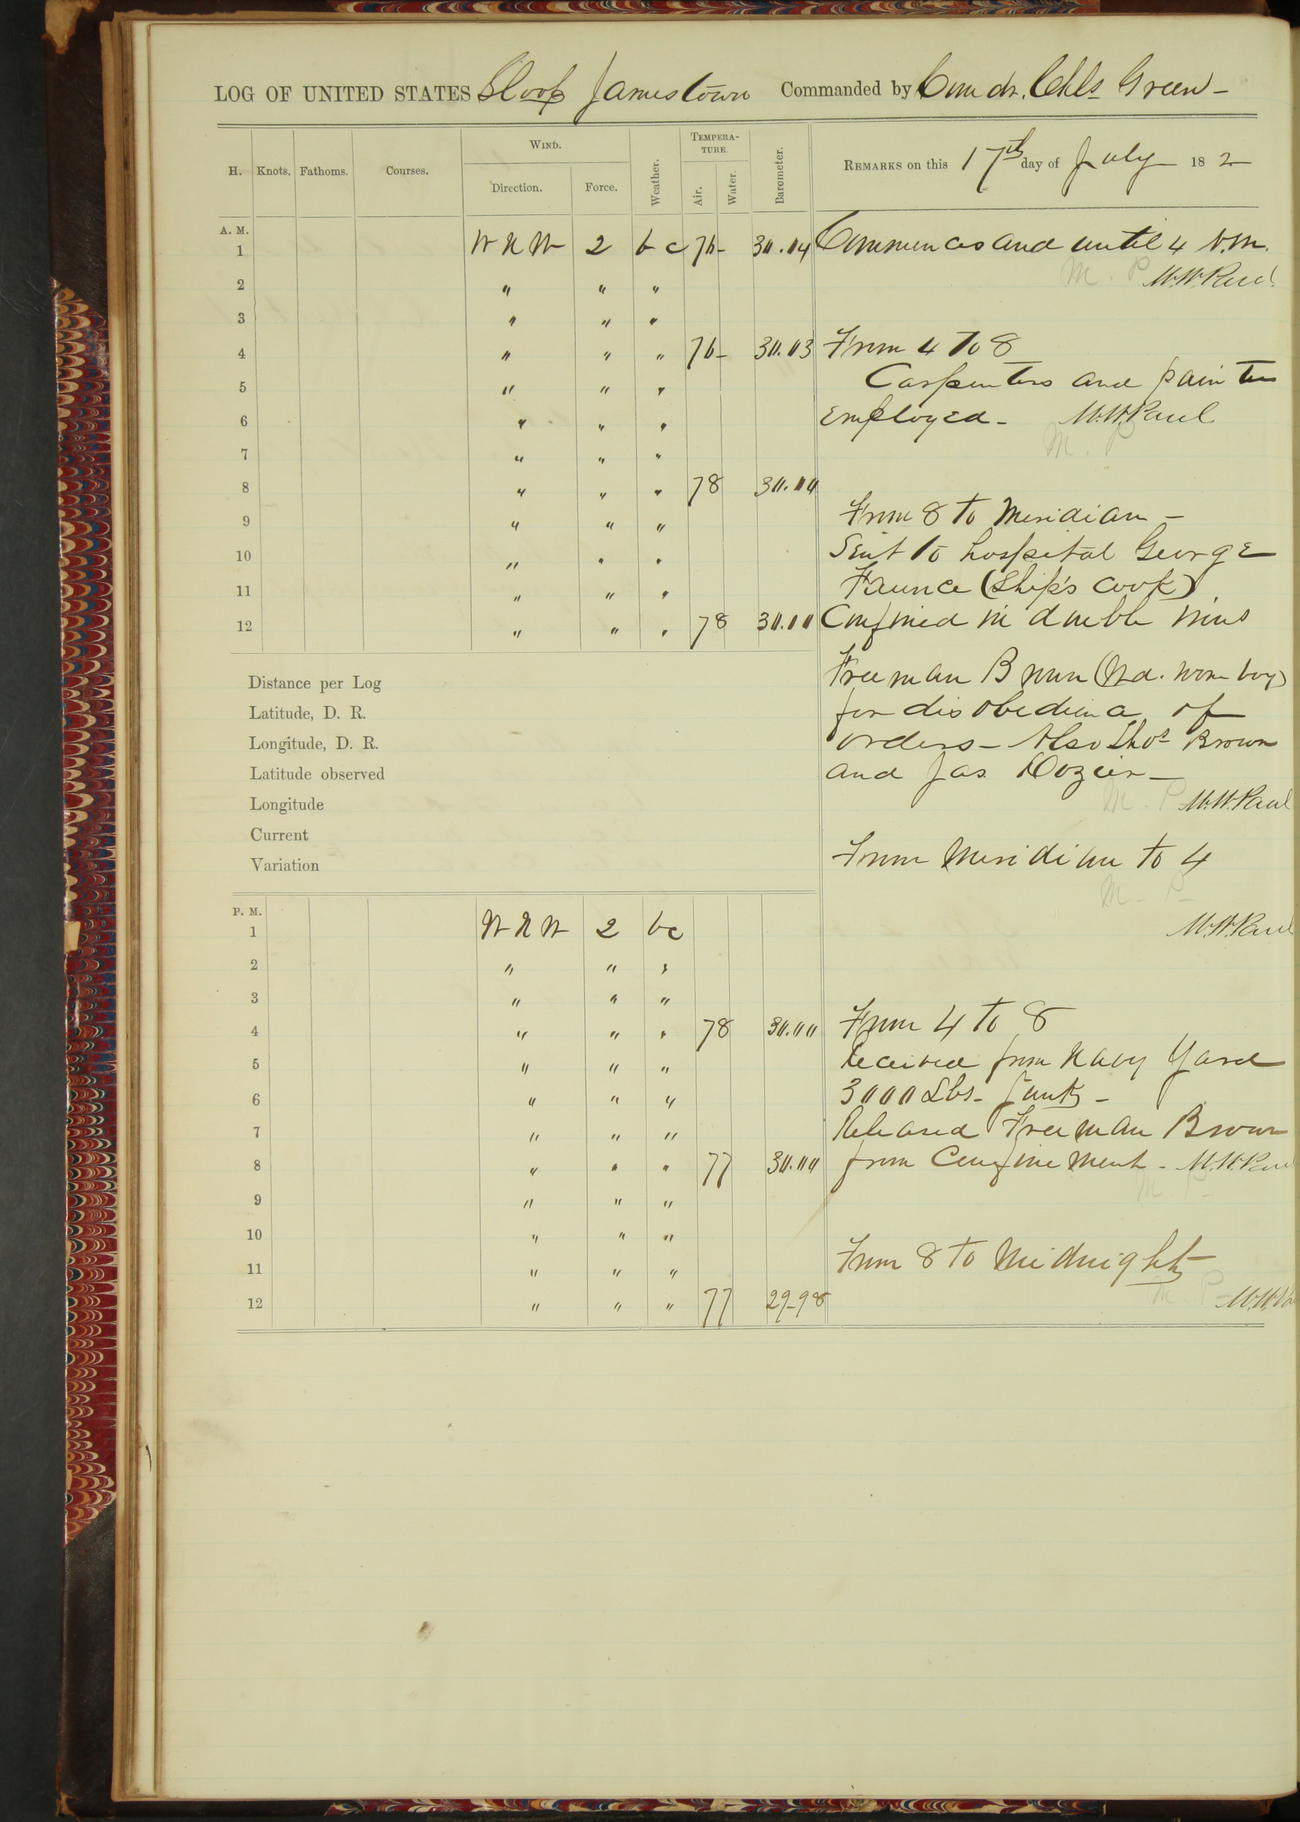 LOG OF UNITED STATES Sloop Jamestown Commanded by Comdr. Chls Green -
H. Knots. Fathoms. Courses. WIND. Direction. Force. Weather. TEMPERATURE. Air. Water. Barometer. REMARKS on this 17th day of July 18 2
A. M.
1 W N W 2 b c 76 30.04 Commences and until 4 A.M.
M. P W.W. Paul
2 " " "
3 " " "
4 " " " 76 30.03 From 4 to 8
5 " " " Carpenters and painters
6 " " " employed - W.W. Paul
M. P
7 " " "
8 " " " 78 30.00
9 " " " From 8 to Meridian -
10 " " " Sent to hospital George
11 " " " Faunce (Ship's cook)
12 " " " 78 30.00 Confined in double irons
Distance per Log Freeman Brown
Latitude, D. R. for disobedience of
Longitude, D. R. orders - Also Thos Brown
Latitude observed and Jas Dozier -
Longitude M. P W.W. Paul
Current
Variation From Meridian to 4
M. P -
P. M.
1 W N W 2 bc W.W. Paul
2 " " "
3 " " "
4 " " " 78 30.00 From 4 to 8
5 " " " Received from Navy Yard
6 " " " 3000 Lbs. Junk -
7 " " " Released Freeman Brown
8 " " " 77 30.00 from Confinement - W.W. Paul
M. P -
9 " " "
10 " " "
11 " " " From 8 to Midnight
12 " " " 77 29.98 M. P - W.W. Pa